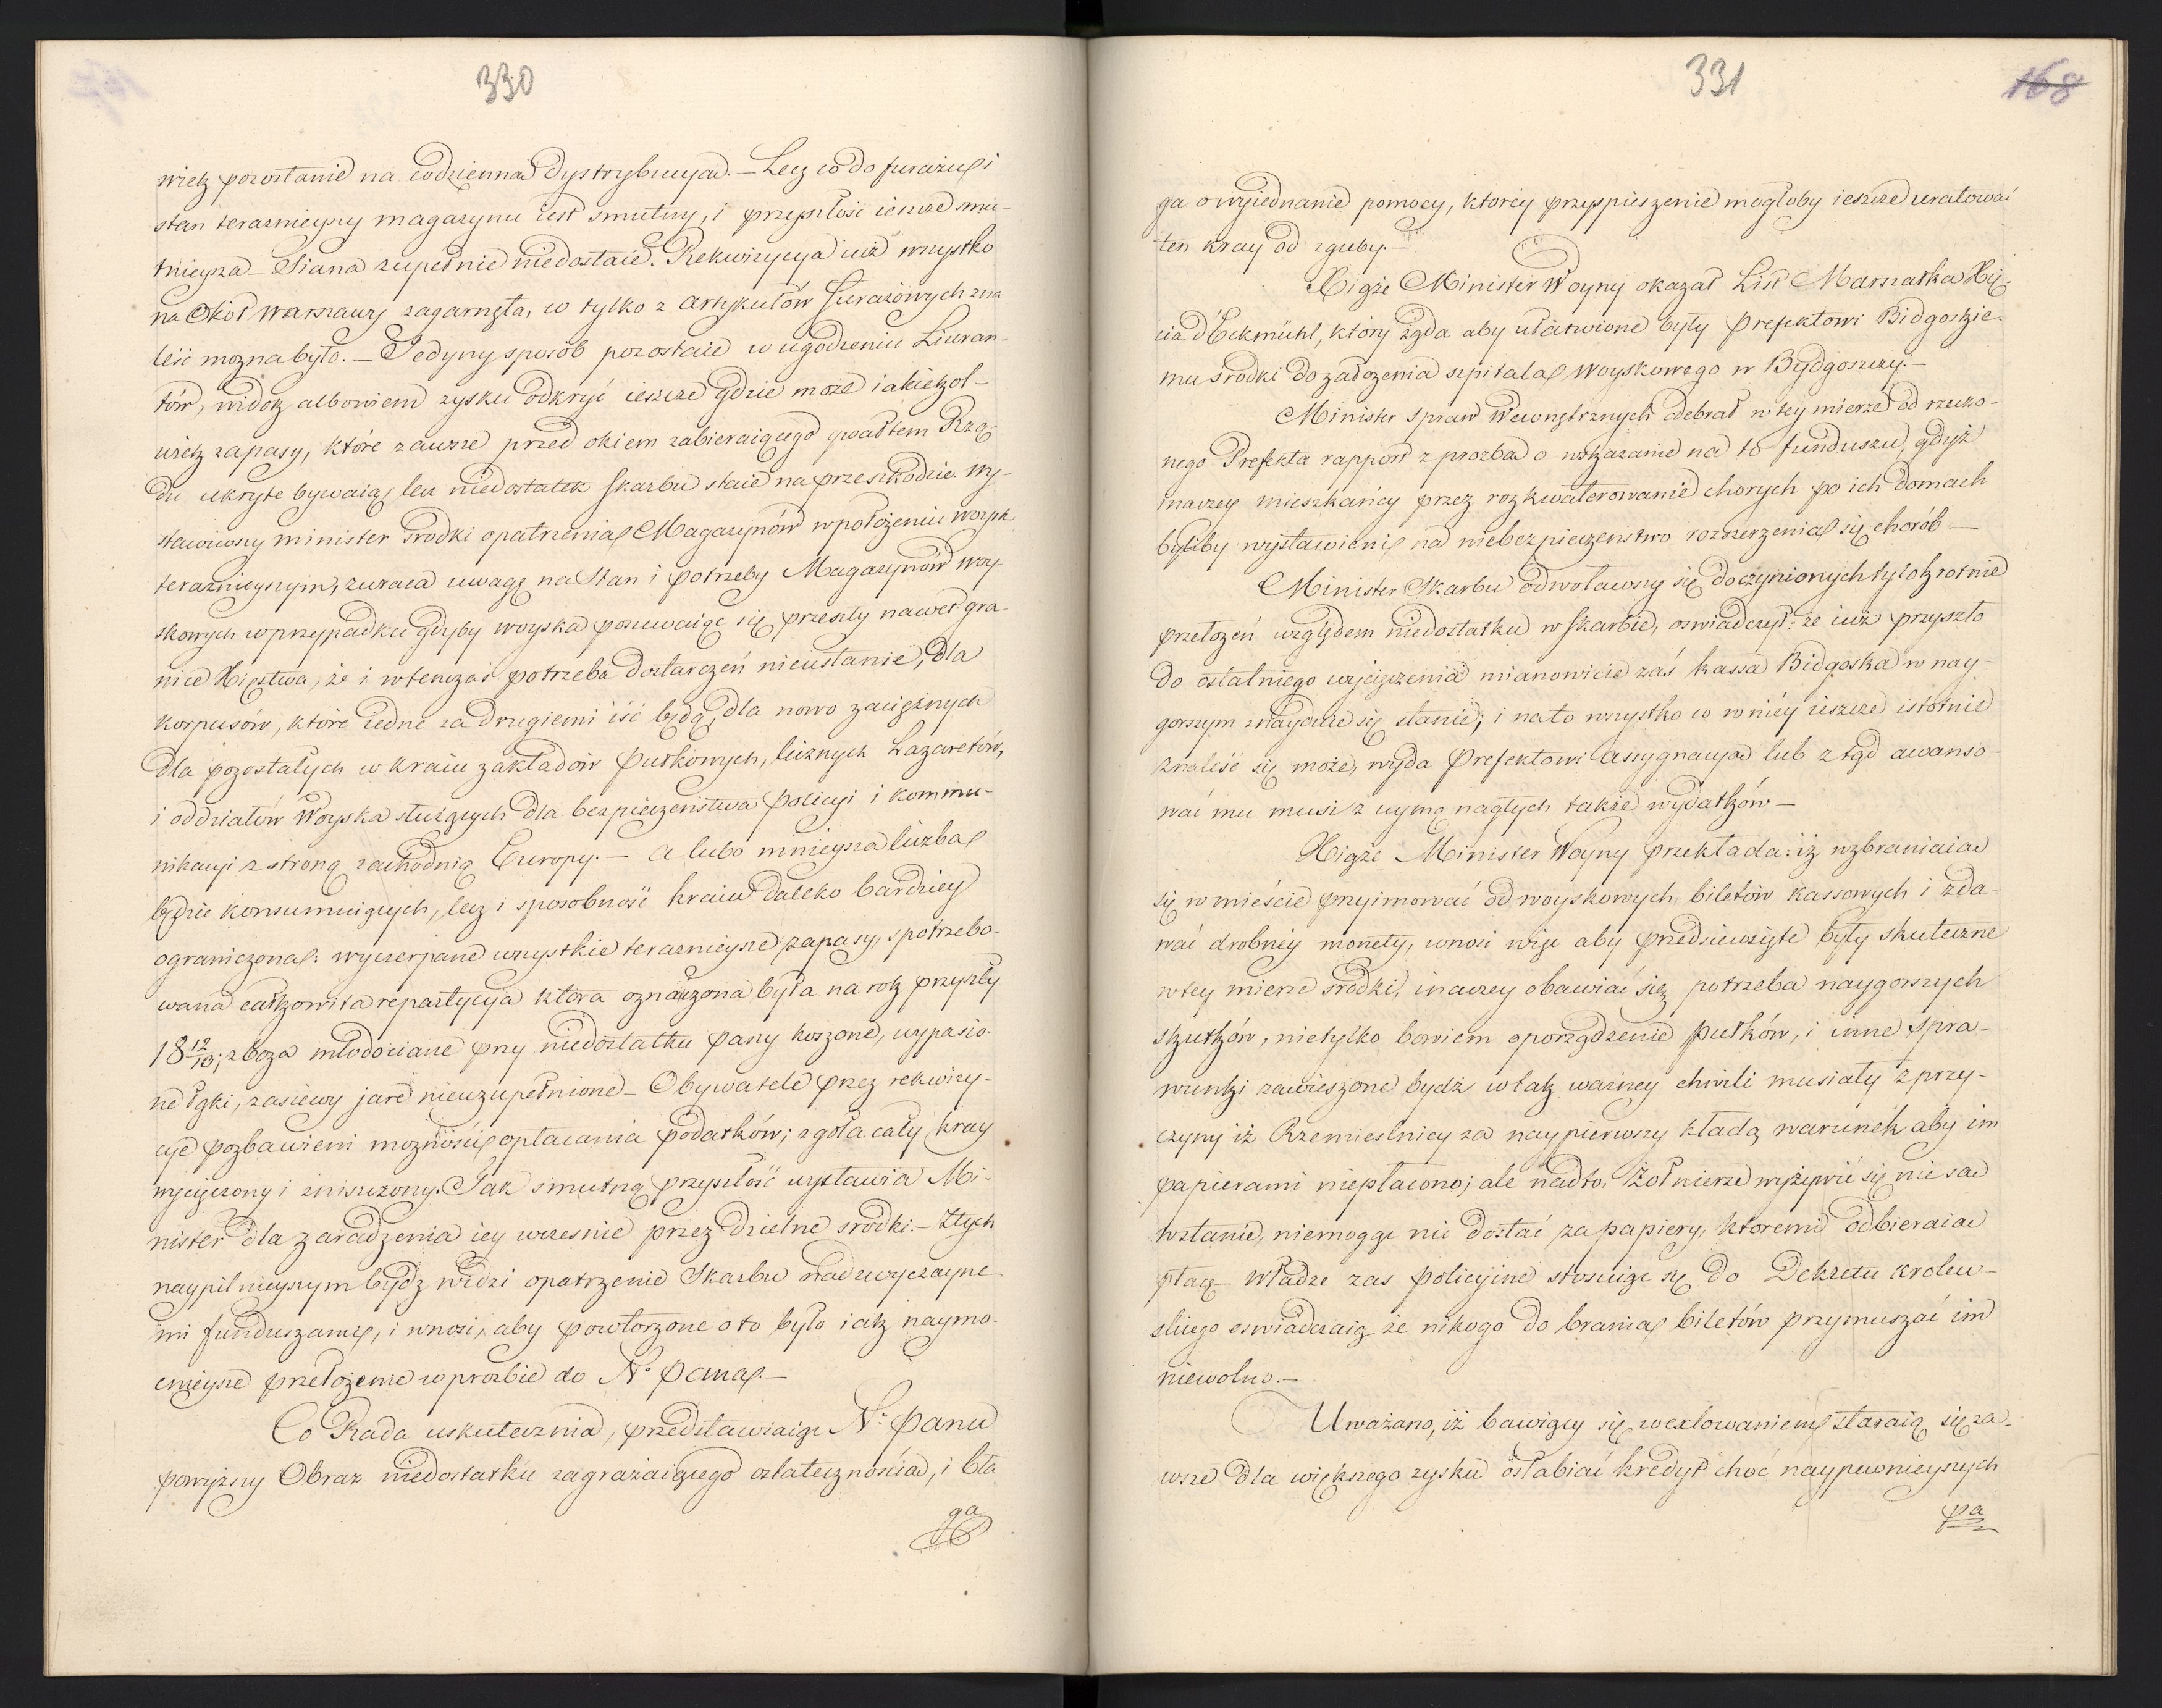 330
wiek pozostanie na codzienna dystrybucyą. – Lecz co do furażu i
stan teraznieyszy magazynu iest smutny, i przyszłość ieszcze smu-
tnieysza – Siana zupełnie niedostaie. Rekwizycya iuż wszystko
na okoł Warszawy zagarnęła, co tylko z artykułów furażowych zna
leść można było. – Jedyny sposób pozostaie w ugodzeniu Liweran-
tów, widok albowiem zysku odkryć ieszcze gdzie może iakiekol-
wiek zapasy, które zawsze przed okiem zabieraiącego gwałtem Rzą-
du ukryte bywaią, lecz niedostatek skarbu staie na przeszkodzie. Wy-
stawiwszy minister srodki opatrzenia Magazynów w położeniu woysk
teraznieyszym, zwraca uwagę na Stan i potrzeby Magazynów woy-
skowych w przypadku gdyby woyska posuwaiąc się przeszły nawet gra-
nice Xięstwa, że i wtenczas potrzeba dostarczeń nieustanie, dla
korpusów, które iedne za drugiemi iść będą, dla nowo zaciężnych
dla pozostałych w kraiu zakładów pułkowych, licznych Lazaretów,
i oddziałów Woyska służących dla bezpieczeństwa policyi i kommu-
nikacyi z stroną zachodnią Europy. – a lubo mnieysza liczba
będzie konsumuiących, lecz i sposobność kraiu daleko bardziey
ograniczona: wyczerpane wszystkie teraznieysze zapasy, spotrzebo-
wana całkowita repartycya ktora oznaczona była na rok przyszły
18 12/13; zboża młodociane przy niedostatku paszy koszone, wypasio-
ne łąki, zasiewy jare nieuzupełnione – Obywatele przez rekwizy-
cye pozbawieni możności opłacania podatków; zgoła cały kray
wycięczony i zniszczony. Tak smutną przyszłość wystawia Mi-
nister dla zaradzenia iey wcześnie przez dzielne srodki – Z tych
naypilnieyszym bydź widzi opatrzenie Skarbu nadzwyczayne-
mi funduszami, i wnosi, aby powtorzone o to było iak naymo-
cnieysze przełożenie w prozbie do N. Pana. –
Co Rada uskutecznia, przedstawiaiąc N. Panu
powyższy Obraz niedostatku zagrażaiącego ostatecznością, i bła
ga
331
168
ga o wyiednanie pomocy, ktorey przyspieszenie mogłoby ieszcze uratować
ten kray od zguby. –
Xiąże Minister Woyny okazał List Marszałka Xię-
cia d'Eckmühl, który żąda aby ułatwione były Prefektowi Bidgoskie-
mu srodki do założenia szpitala Woyskowego w Bydgoszczy. –
Minister Spraw Wewnętrznych odebrał w tey mierze od rzeczo-
nego Prefekta rapport z prozba o wskazanie na to funduszu, gdyż
inaczey mieszkańcy przez rozkwaterowanie chorych po ich domach
byliby wystawieni na niebezpieczeństwo rozszerzenia się chorób –
Minister Skarbu odwoławszy się do czynionych tylokrotnie
przełożeń względem niedostatku w skarbie, oswiadczył: że iuż przyszło
do ostatniego wycięczenia mianowicie zaś kassa Bidgoska w nay-
gorszym znayduie się stanie; i na to wszystko co w niey ieszcze istotnie
znaleść się może, wyda Prefektowi assygnacyą lub z tąd awanso-
wać mu musi z uymą nagłych także wydatków –
Xiąże Minister Woyny przekłada: iż wzbraniaią
się w mieście przyimować od woyskowych biletów kassowych i zda-
wać drobney monety, wnosi więc aby przedsięwzięte były skuteczne
w tey mierze srodki, inaczey obawiać się potrzeba naygorszych
skutków, nietylko bowiem oporządzenie pułków, i inne spra-
wunki zawieszone bydź w tak ważney chwili musiały z przy-
czyny iż Rzemieslnicy za naypierwszy kładą warunek aby im
papierami niepłacono; ale nadto, Żołnierze wyżywić się nie są
wstanie, niemogąc nic dostać za papiery, ktoremi odbieraią
płacę – Władze zas policyine stosuiąc się do Dekretu krolew-
skiego oswiadczaią że nikogo do brania biletów przymuszać im
niewolno. –
Uważano, iż bawiący się wexlowaniem staraią się za-
wsze dla większego zysku osłabiać kredyt choć naypewnieyszych
pa